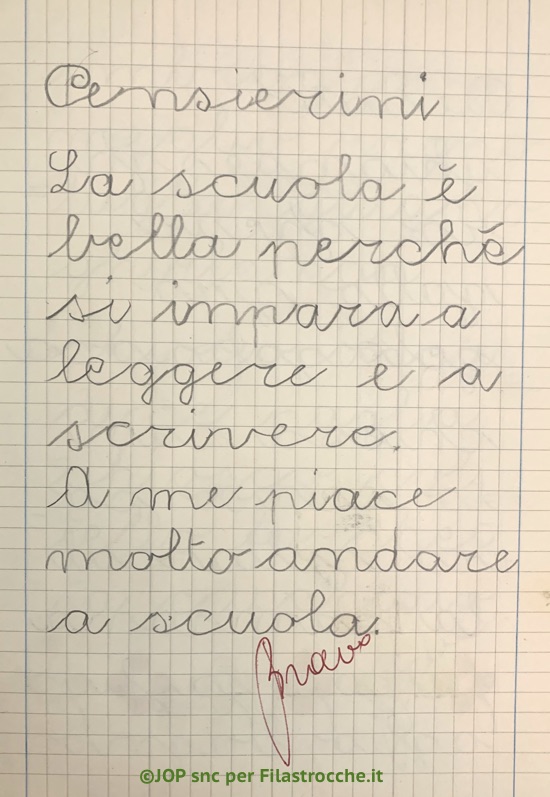 Pensierini
La scuola è
bella perchè
si impara a
leggere e a
scrivere.
A me piace
molto andare
a scuola.
Bravo
©JOP snc per Filastrocche.it